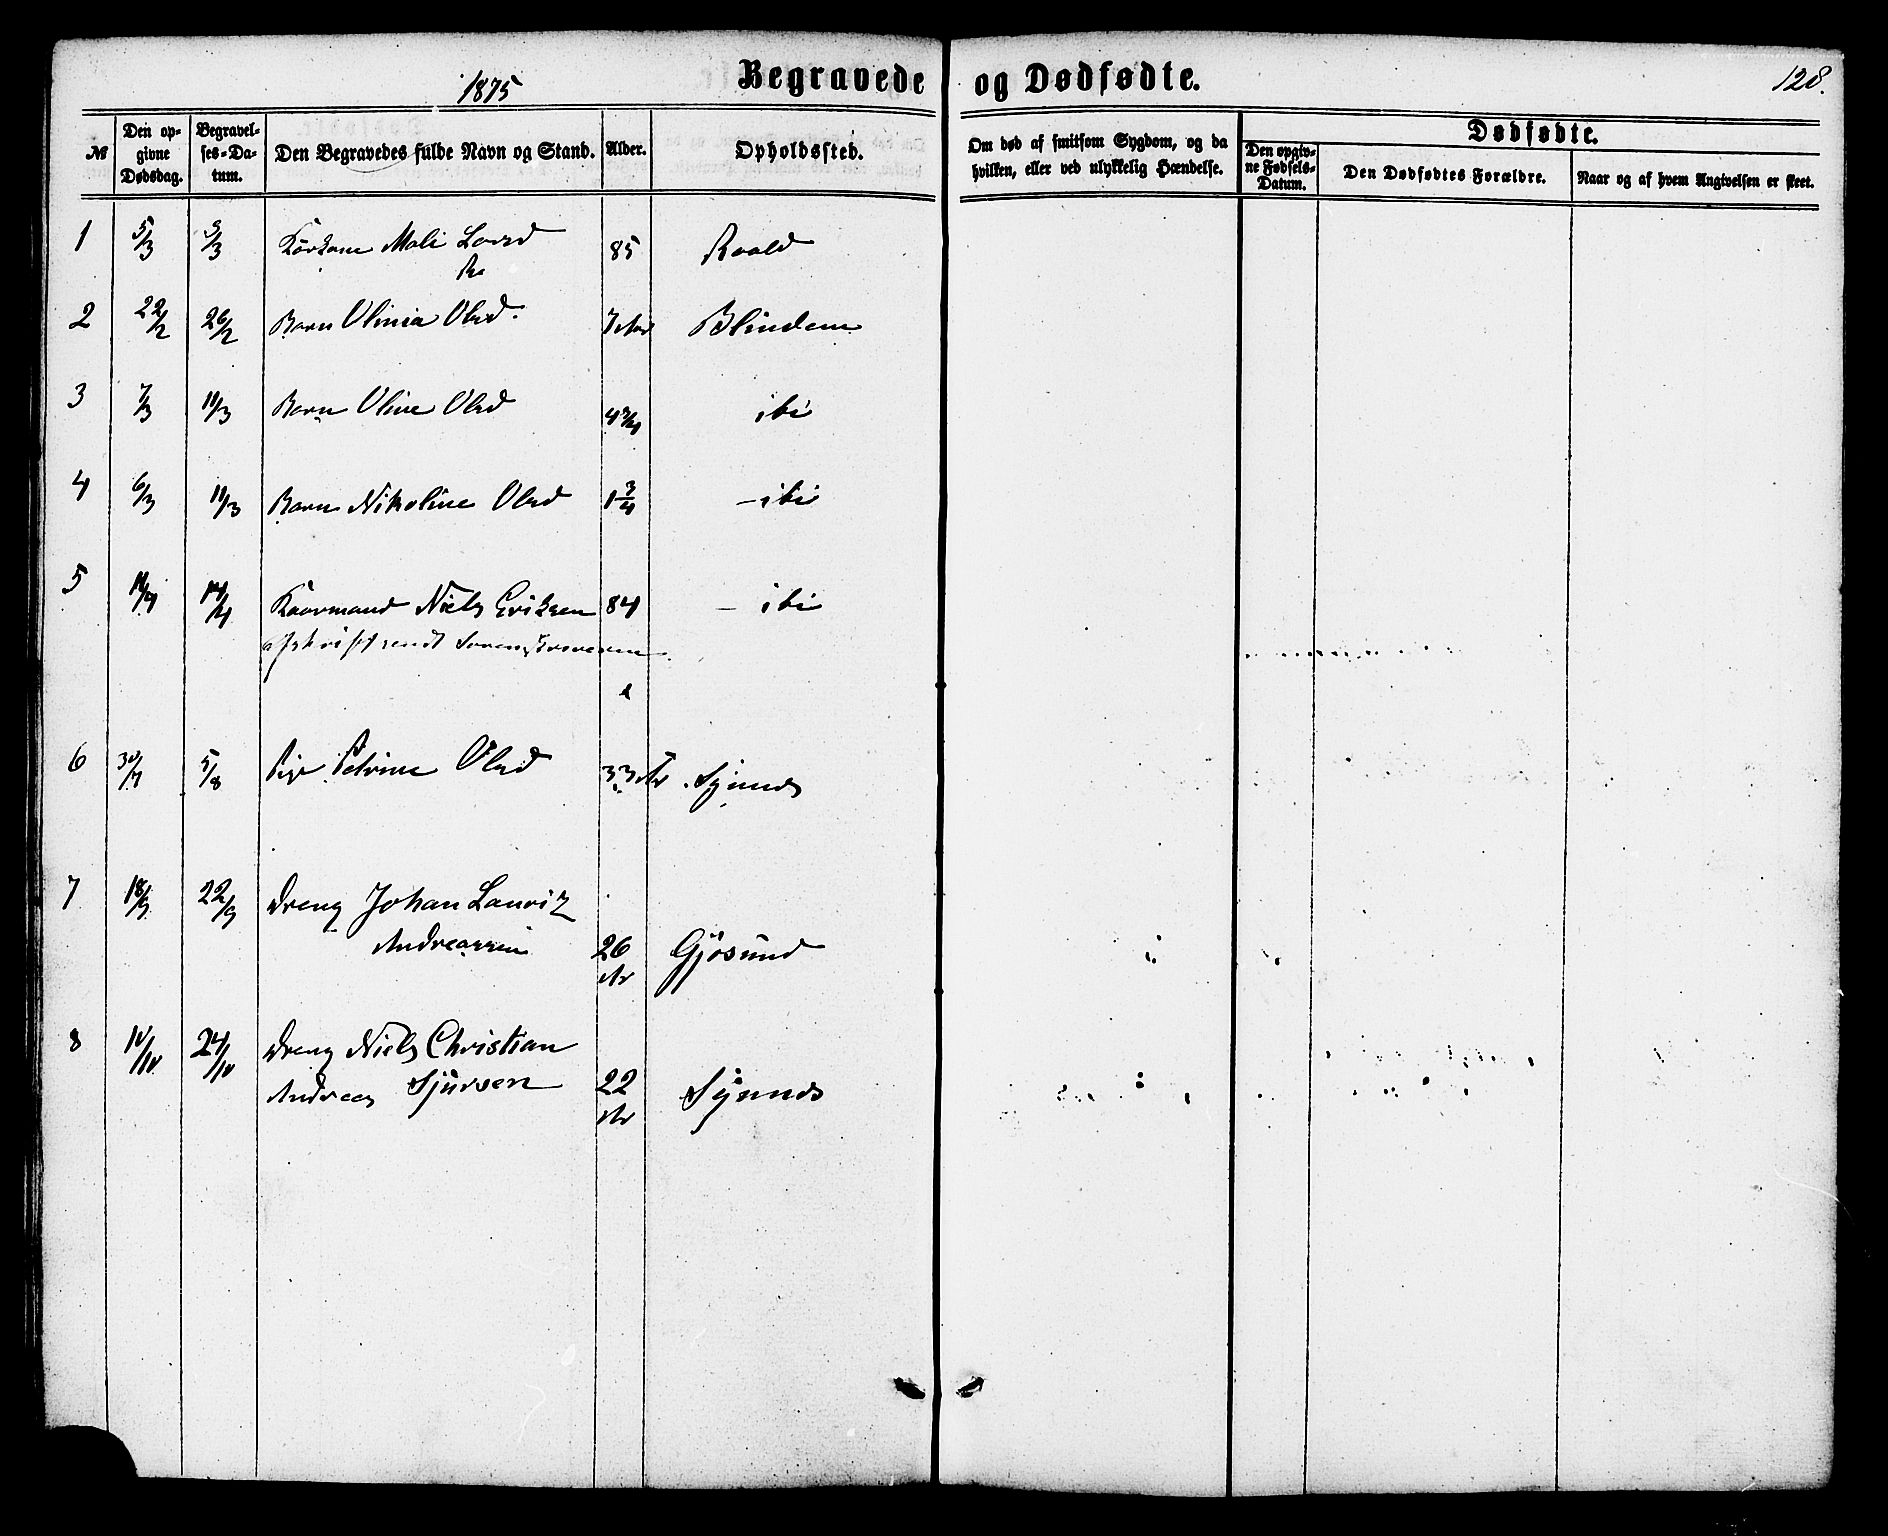 1875
Begravede og Dødfødte.
128.
№
Den opgivne Dødsdag.
Begravelses-Datum.
Den Begravedes fulde Navn og Stand.
Alder.
Opholdssted.
Om død af smitsom Sygdom, og da hvilken, eller ved ulykkelig Hændelse.
Dødfødte.
Den opgivne Fødsels-Datum.
Den Dødfødtes Forældre.
Naar og af hvem Angivelsen er skeet.
1 5/3 5/3 Mali Larsd 85 Roald
2 22/2 26/2 Barn Olinia Olsd. 7 Aar Blindem
3 7/3 11/3 Barn Oline Olsd 4 3/4 ibi
4 6/3 11/3 Barn Nikoline Olsd 1 3/4 – ibi
5 11/4 17/4 Kaarmand Niels Eriksen 84 – ibi
afskrift sendt
6 30/7 5/8 Pige Petrine Olsd 33 Ar Synnes
7 18/9 22/9 Dreng Johan Lauritz
Andreassen 26 Gjøsund
Ar
8 10/10 24/10 Dreng Niels Christian
Andreas Sjursen 22 Synnes
Ar